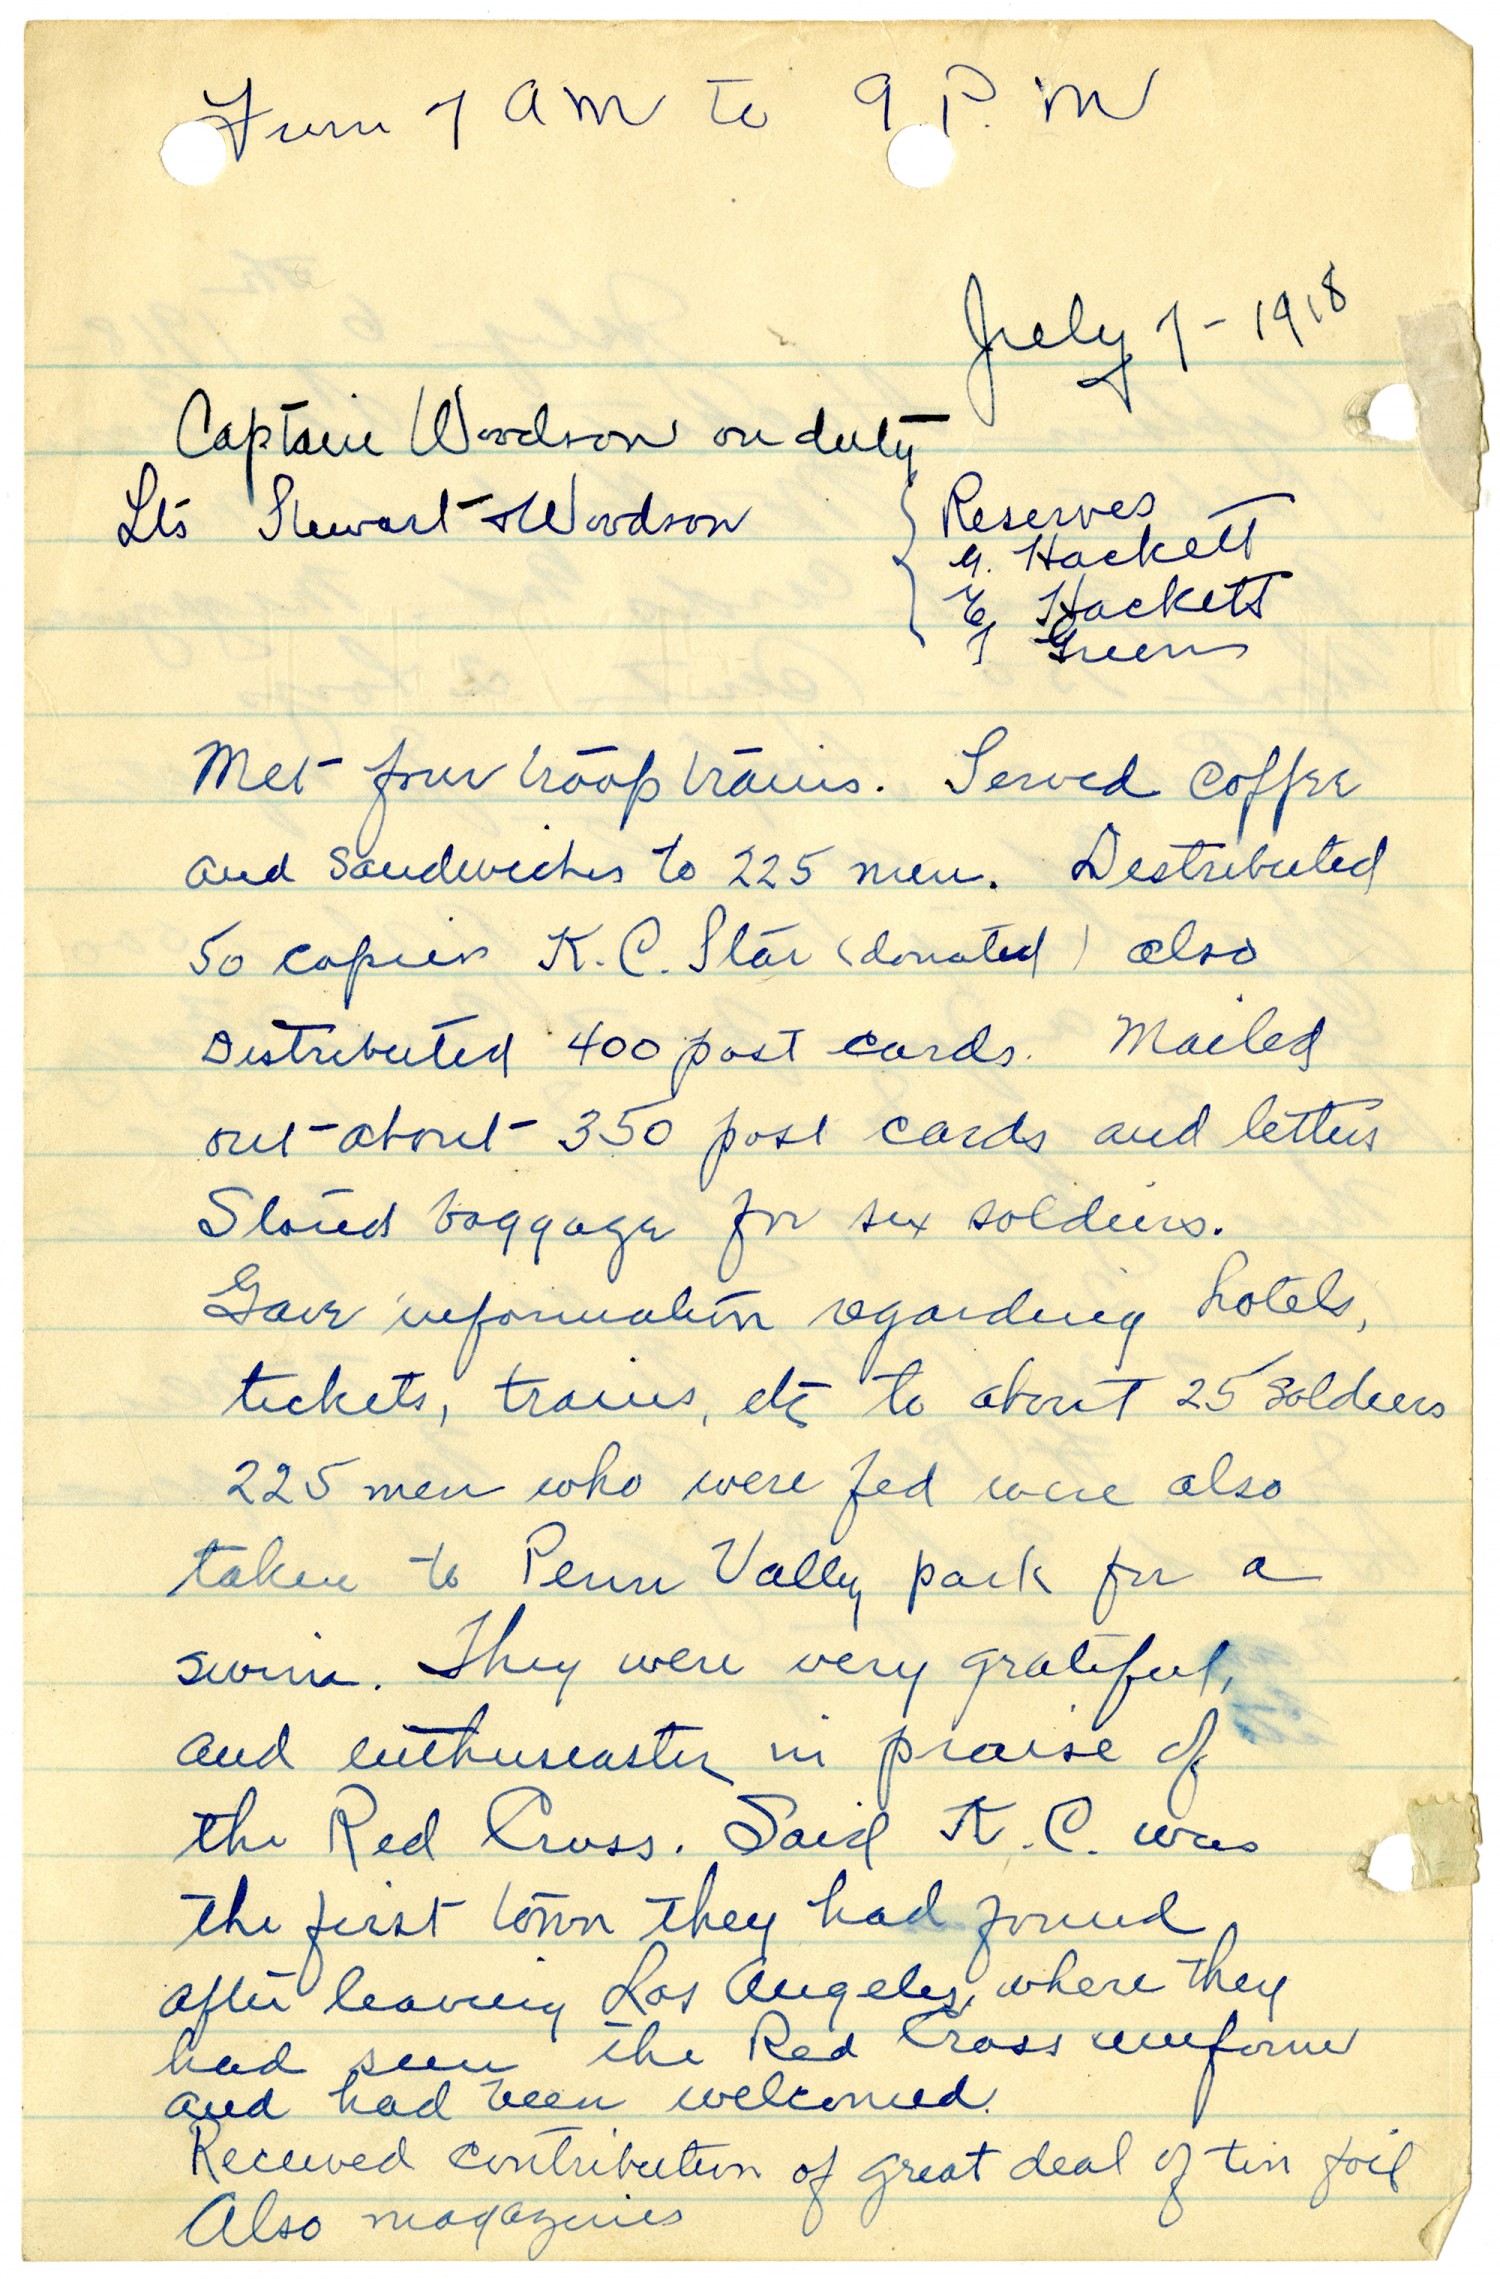 From 7 AM to 9 P.M
July 7 - 1918
Captain Woodson on duty
Lts Stewart & Woodson
Reserves
G. Hackett
E Hackett
F Green
Met four troop trains. Served coffee
and sandwiches to 225 men. Distributed
50 copies K.C. Star (donated) also
Distributed 400 post cards. Mailed
out about 350 post cards and letters
Stored baggage for six soldiers.
Gave information regarding hotels,
tickets, trains, etc to about 25 soldiers
225 men who were fed were also
taken to Penn Vally park for a
swim. They were very grateful,
and enthusiastic in praise of
the Red Cross. Said K.C. was
the first town they had found
after leaving Los Angeles, where they
had seen the Red Cross uniform
and had been welcomed.
Received contribution of great deal of tin foil
Also magazines